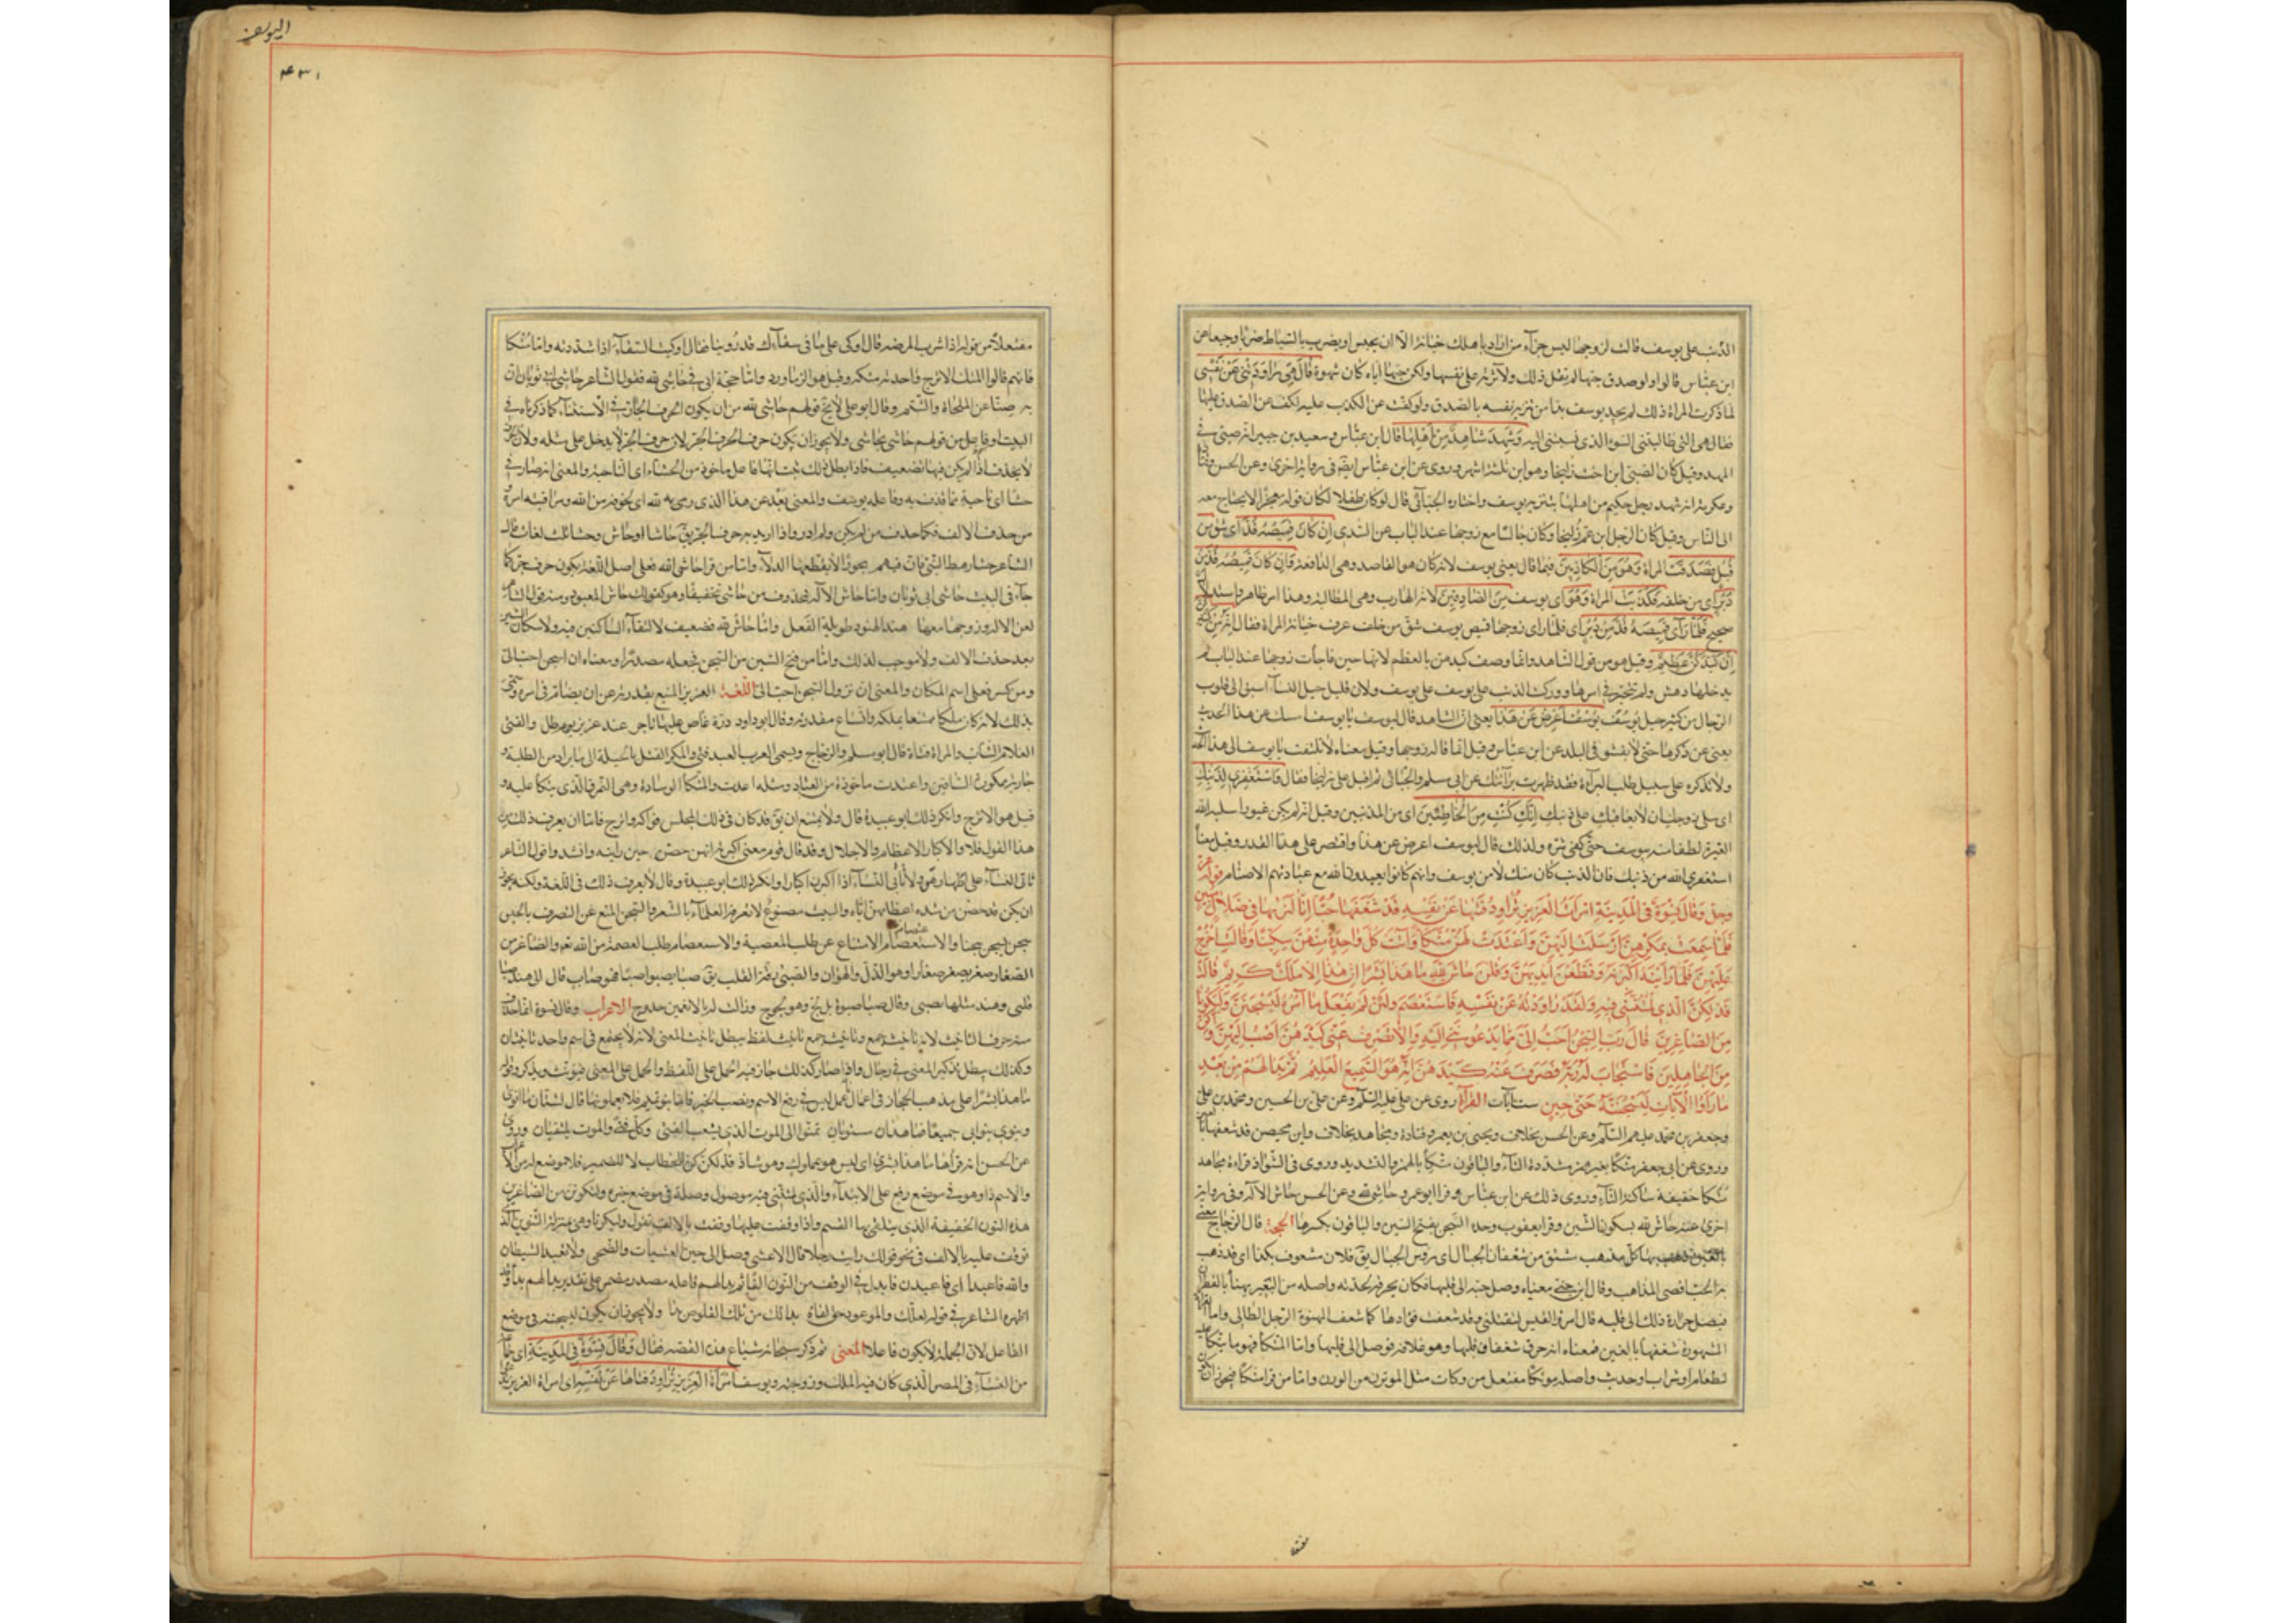 الذنب على يوسف قالت لزوجها ليس جزآء من اراد باهلك خيانة الا ان يحبس او يضرب بالسياط ضربا وجيعا عن
ابن عباس قالوا ولو صدق حبها لم تقل ذلك ولآثرته على نفسها ولكن حبها اياه كان شهوة قال هى راودتنى عن نفسى
لما ذكرت المراة ذلك لم يجد يوسف بدا من تنزيه نفسه بالصدق ولو كفت عن الكذب عليه لكف عن الصدق عليها
فقال هى التى طالبتنى بالسوء الذى نسبتنى اليه وشهد شاهد من اهلها قال ابن عباس وسعيد بن جبير انه صبى فى
المهد وقيل كان الصبى ابن اخت زليخا وهو ابن ثلثة اشهر وروى عن ابن عباس ايضا فى رواية اخرى وعن الحسن وقتادة
وعكرمة انه شهد رجل حكيم من اهلها بتنزيه يوسف واختاره الجبائى قال لو كان طفلا لكان قوله معجزا لا يحتاج معه
الى الناس وقيل كان الرجل ابن عم زليخا وكان جالسا مع زوجها عند الباب عن السدى ان كان قميصه قد اى شق من
قبل فصدقت المراة وهو من الكاذبين فيما قال يعنى يوسف لانه كان هو القاصد وهى الدافعة وان كان قميصه قد من
دبر اى من خلفه فكذبت المراة وهو اى يوسف من الصادقين لانه الهارب وهى المطالبة وهذا امر ظاهر واستدلال
صحيح فلما راى قميصه قد من دبر اى فلما راى زوجها قميص يوسف شق من خلف عرف خيانة المراة فقال انه من كيدكن
ان كيدكن عظيم وقيل هو من قول الشاهد وانما وصف كيدهن بالعظم لانها حين فاجأت زوجها عند الباب لم
يدخلها دهش ولم تتحير فى امرها وورك الذنب على يوسف على يوسف ولان قليل حيل النسآء اسبق الى قلوب
الرجال من كثير حيل يوسف يوسف اعرض عن هذا يعنى ان الشاهد قال ليوسف يا يوسف امسك عن هذا الحديث
يعنى عن ذكرها حتى لا يفشو فى البلد عن ابن عباس وقيل انما قاله زوجها وقيل معناه لا تلتفت يا يوسف الى هذا الحديث
ولا تذكره على سبيل طلب البرآءة فقد ظهرت برآءتك عن ابى مسلم والجبائى ثم اقبل على زليخا فقال واستغفرى لذنبك
اى سلى زوجك ان لا يعاقبك على ذنبك انك كنت من الخاطئين اى من المذنبين وقيل انه لم يكن غيورا سلبه الله
الغيرة لطفا منه بيوسف حتى كفى شره ولذلك قال ليوسف اعرض عن هذا واقتصر على هذا القدر وقيل معناه
استغفرى الله من ذنبك فان الذنب كان منك لا من يوسف وانهم كانوا يعبدون الله مع عبادتهم الاصنام قوله عز
وجل وقال نسوة فى المدينة امرات العزيز تراود فتيها عن نفسه قد شغفها حبا انا لنريها فى ضلال مبين
فلما سمعت بمكرهن ارسلت اليهن واعتدت لهن متكأ وآتت كل واحدة منهن سكينا وقالت اخرج
عليهن فلما راينه اكبرنه وقطعن ايديهن وقلن حاش لله ما هذا بشرا ان هذا الا ملك كريم قالت
فذلكن الذى لمتننى فيه ولقد راودته عن نفسه فاستعصم ولئن لم يفعل ما آمره ليسجنن وليكونا
من الصاغرين قال رب السجن احب الى مما يدعوننى اليه والا تصرف عنى كيدهن اصب اليهن واكن
من الجاهلين فاستجاب له ربه فصرف عنه كيدهن انه هو السميع العليم ثم بدا لهم من بعد
ما راوا الآيات ليسجننه حتى حين ست آيات القرآءة روى عن على عليه السلم وعن على بن الحسين ومحمد بن على
وجعفر بن محمد عليهم السلم وعن الحسن بخلاف ويحيى بن يعمر وقتادة ومجاهد بخلاف وابن محيصن قد شعفها بالعين
وروى عن ابى جعفر متكا بغير همز مشددة التآء والباقون متكأ بالهمز والتشديد وروى فى الشواذ قراءة مجاهد
متكا خفيفة ساكنة التآء وروى ذلك عن ابن عباس وقرا ابو عمرو حاشى لله وعن الحسن حاش الاله وفى رواية
اخرى عنه حاش لله بسكون الشين وقرا يعقوب وحده السجن بفتح السين والباقون بكسرها الحجة قال الزجاج معنى
بها كل مذهب مشتق من شعفات الجبال اى رؤس الجبال يق فلان مشعوف بكذا اى قد ذهب
به الحب اقصى المذاهب وقال ابن جنى معناه وصل حبه الى قلبها فكان يحرقه بحدته واصله من البعير يهنأ بالقطران
فيصل حرارة ذلك الى قلبه قال امرؤ القيس لتقتلنى وقد شعفت فؤادها كما شعف المهنوءة الرجل الطالى واما القراءة
المشهورة شغفها بالغين فمعناه انه خرق شغاف قلبها وهو غلافه فوصل الى قلبها واما المتكأ فهو ما يتكأ عليه
لطعام او شراب او حديث واصله موتكأ مفتعل من وكات مثل الموتزن من الوزن واما من قرا متكا فيجوز ان يكون
اليوسف
٤٣١
مفتعلا من قوله اذا شرب المرضة قال اوكى على ما فى سقآءك قد روينا يقال اوكيت السقآء اذا شددته واما متكا
فانهم قالوا المتك الاترج واحدته متكة وقيل هو الزماورد واما حجة ابى فى حاشى لله فقول الشاعر حاشى ابى ثوبان ان
به ضنا عن الملحاة والشتم وقال ابو على لا يخ قولهم حاشى لله من ان يكون الحرف الجار فى الاستثنآء كما ذكرناه فى
البيت او فاعل من قولهم حاشى يحاشى ولا يجوز ان يكون حرف الجر لان حرف الجر لا يدخل على مثله ولان الحرف
لا يحذف اذا لم يكن فيها تضعيف فاذا بطل ذلك ثبت انه فاعل ماخوذ من الحشاء اى الناحية والمعنى انه صار فى
حشا اى ناحية مما قذف به وفاعله يوسف والمعنى بعد عن هذا الذى رمى به لله اى لخوفه من الله ومراقبته امره
من حذف الالف فكما حذف من لم يكن ولم ادر واذا اريد به حرف الجر يق حاشا او حاش وحشا تلك لغات قال
الشاعر حشا رهط النبى فان فيهم بحورا لا يقطعها الدلآء واما من قرا حاشى لله فعلى اصل اللغة يكون حرف جر كما
جآء فى البيت حاشى ابى ثوبان واما حاش الاله فمحذوف من حاشى تخفيفا وهو كقولك حاش المعبود ومنه قول الشاعر
لعن الاله وزوجها معها هند الهنود طويلة الفعل واما حاش لله فضعيف لالتقآء الساكنين فيه ولاسكان الشين
بعد حذف الالف ولا موجب لذلك واما من فتح السين من السجن فجعله مصدرا ومعناه ان اسجن احب الى
ومن كسر فعلى اسم المكان والمعنى ان نزول السجن احب الى اللغة العزيز المنيع بقدرته عن ان يضام فى امره وسمى
بذلك لانه كان ملكا ممتنعا بملكه واتساع مقدرته وقال ابو داود درة غاص عليها تاجر عند عزيز يوم طل والفتى
الغلام الشاب والمراة فتاة قال ابو مسلم والزجاج ويسمى العرب العبد فتى والمكر الفتل بالحيلة الى ما يراد من الطلبة و
جارية ممكورة الساقين واعتدت ماخوذة من العتاد ومثله اعدت والمتكأ الوسادة وهى النمرق الذى يتكأ عليه و
قيل هو الاترج وانكر ذلك ابو عبيدة قال ولا يمتنع ان يق قد كان فى ذلك المجلس فواكه واترج فاما ان يعرف ذلك من
هذا القول فلا والاكبار الاعظام والاجلال وقد قال قوم معنى اكبرنه انهن حضن حين راينه وانشدوا قول الشاعر
تاتى النسآء على اطهارهن ولا تاتى النسآء اذا اكبرن اكبارا وانكر ذلك ابو عبيدة وقال لا يعرف ذلك فى اللغة ولكنه يجوز
ان يكن قد حضن من شدة اعظامهن اياه والبيت مصنوع لا يعرفه العلمآء بالشعر والسجن المنع عن التصرف بالحبس
سجن يسجن سجنا والاستعصام الامتناع عن طلب المعصية والاستعصام طلب العصمة من الله تعم والصاغر من
الصغار صغر يصغر صغارا وهو الذل والهوان والصبى رقة القلب يق صبا يصبو اصبا فهو صاب قال الى هند صبا
قلبى وهند مثلها يصبى وقال صبا صبوة بل لج وهو لجوج وزالت له بالانعمين حدوج الاعراب وقال نسوة انما حذف
منه حرف التانيث لانه تانيث جمع وتانيث جمع تانيث لفظ يبطل تانيث المعنى لانه لا يجتمع فى اسم واحد تانيثان
وكذلك يبطل تذكير المعنى فى رجال واذا صار كذلك جاز فيه الحمل على اللفظ والحمل على المعنى فيؤنث ويذكر وقوله
ما هذا بشرا على مذهب الحجاز فى اعمال ما عمل ليس فى رفع الاسم ونصب الخبر فاما بنو تميم فلا يعملونها قال لشتان ما انوى
وينوى بنو ابى جميعا فما هذان مستويان تمنوا لى الموت الذى يشعب الفتى وكل فتى والموت يلتقيان وروى
عن الحسن انه قرأها ما هذا بشرى اى ليس هو بمملوك وهو شاذ فذلكن كن للخطاب لا للضمير فلا موضع له من الاعراب
والاسم ذا وهو فى موضع رفع على الابتدآء والذى لمتننى فيه موصول وصلة فى موضع خبره وليكونن من الصاغرين
هذه النون الخفيفة الذى يتلقى بها القسم واذا وقفت عليها وقفت بالالف تقول وليكونا وهى بمنزلة التنوين الذى
توقف عليه بالالف فى نحو قولك رايت رجلا قال الاعشى وصل الى حين العشيات والضحى ولا تعبد الشيطان
والله فاعبدا اى فاعبدن فابدل فى الوقف من النون الفا ثم بدا لهم فاعله مصدر مضمر على تقدير بدا لهم بدآء وقد
اظهره الشاعر فى قوله لعلك والموعود حق لقاؤه بدا لك من تلك القلوص بدا ولا يجوز ان يكون ليسجننه فى موضع
الفاعل لان الجملة لا يكون فاعلا المعنى ثم ذكر سبحانه شياع هذه القصة فقال وقال نسوة فى المدينة اى جماعة
من النسآء فى المصر الذى كان فيه الملك وزوجته ويوسف امرأة العزيز تراود فتاها عن نفسه اى امراة العزيز